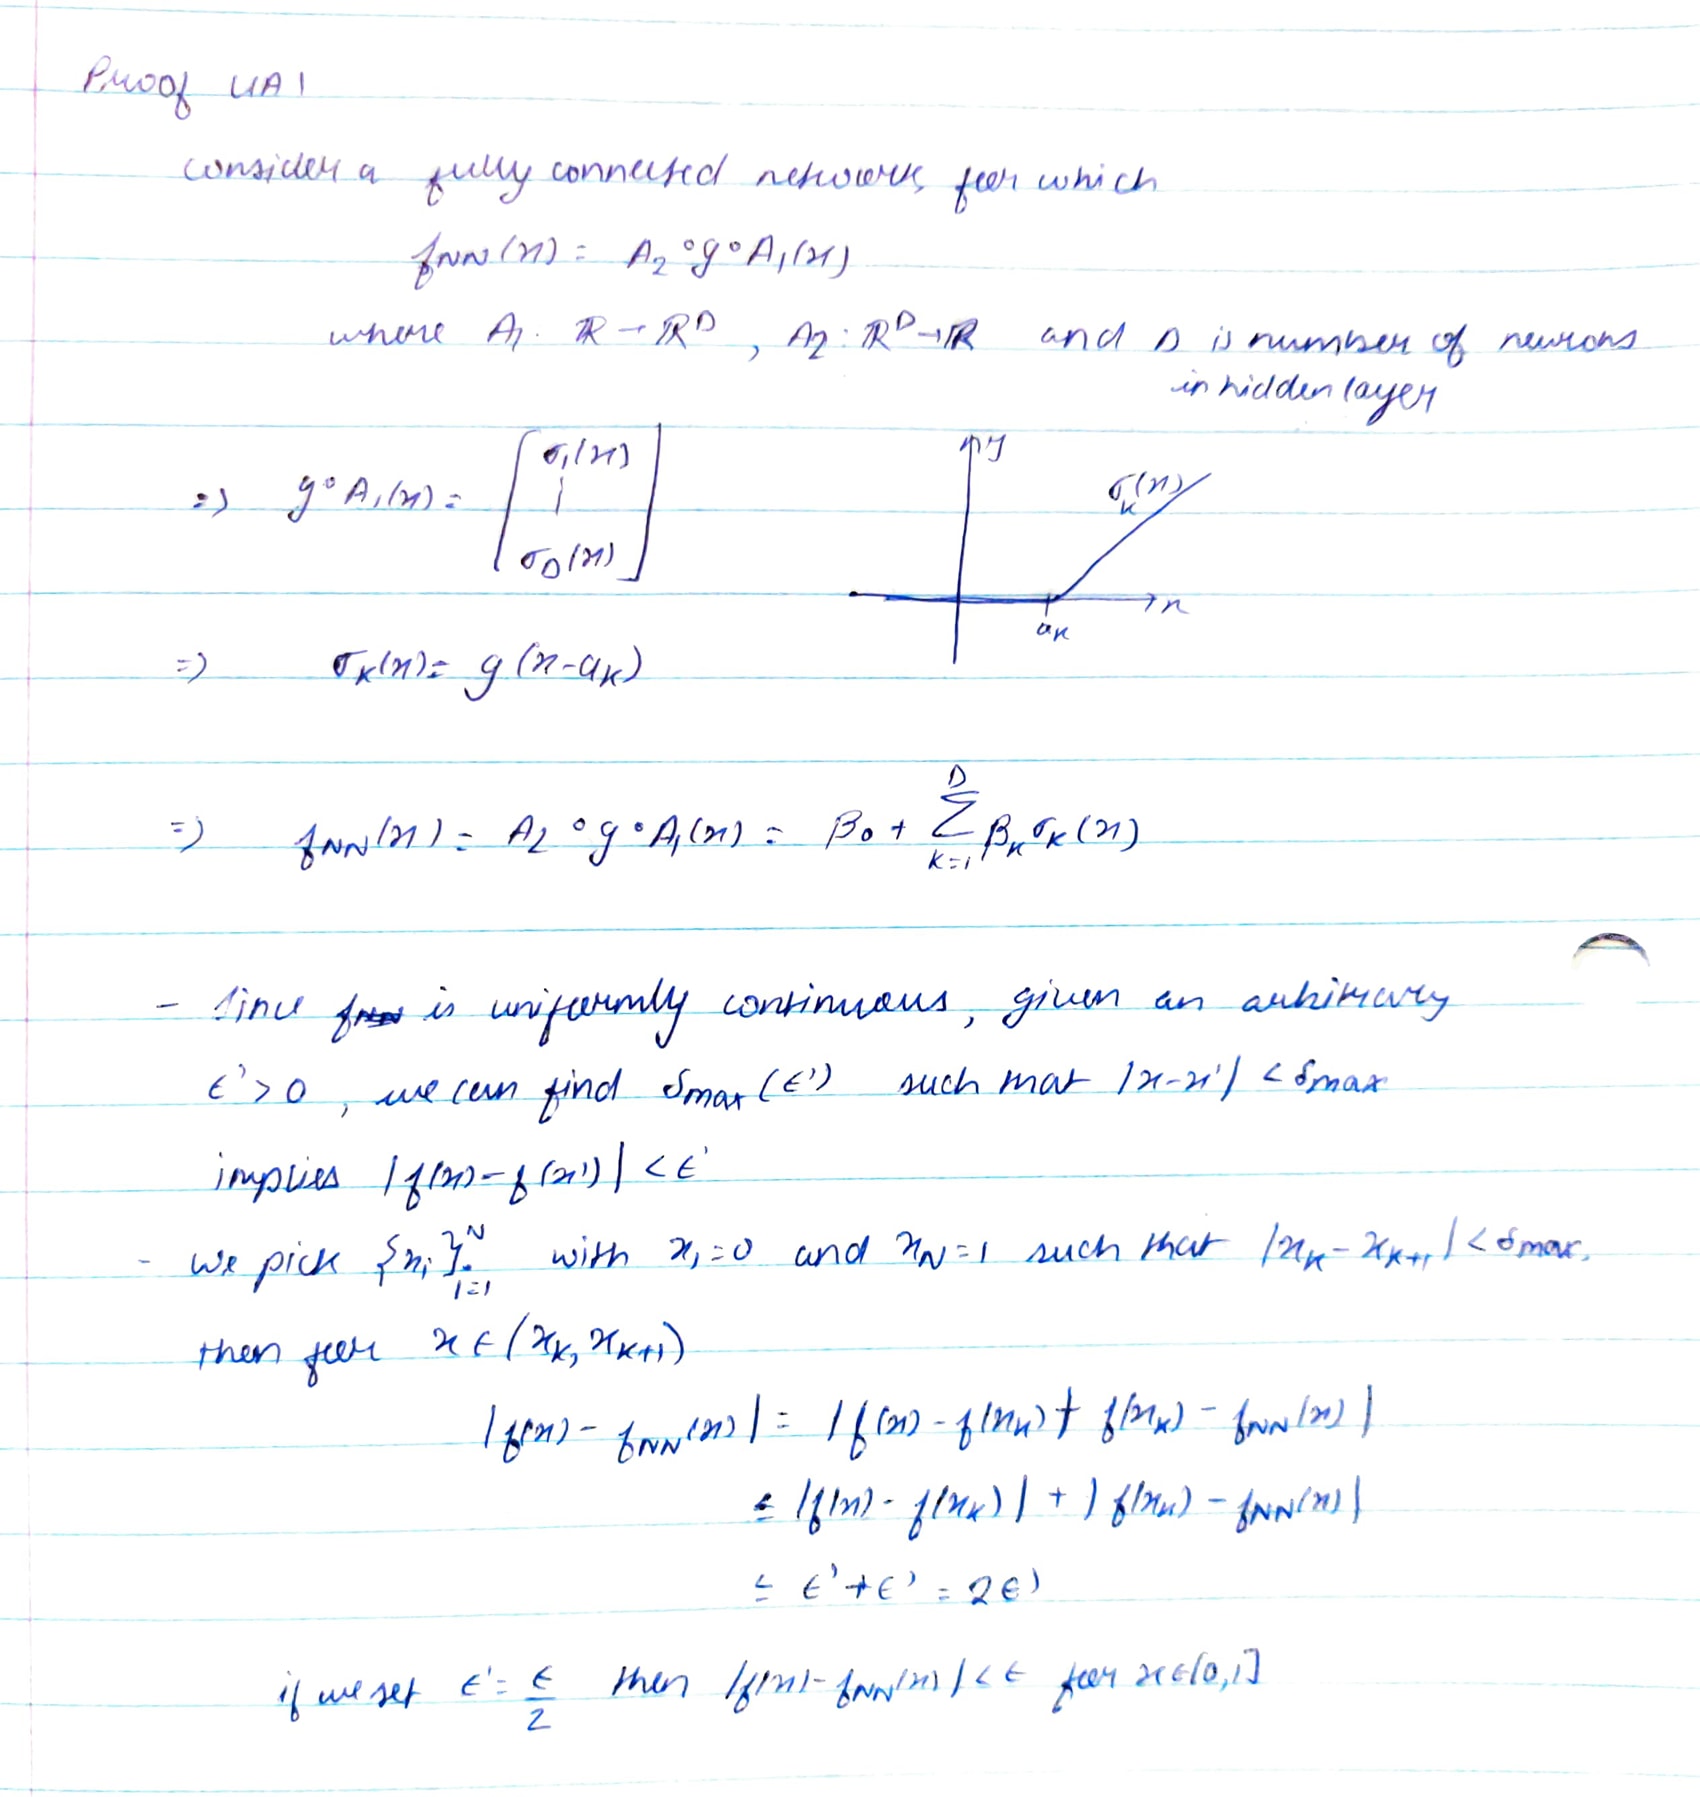 Proof UA1
Consider a fully connected network, for which
f_NN(x) = A₂∘g∘A₁(x)
where A₁: ℝ→ℝᴰ, A₂: ℝᴰ→ℝ and D is number of neurons
in hidden layer
=> g∘A₁(x) = [σ₁(x) ⋮ σ_D(x)]
y
σ_k(x)
x
a_k
=> σ_k(x) = g(x-a_k)
=> f_NN(x) = A₂∘g∘A₁(x) = β₀ + Σ_{k=1}^{D} β_k σ_k(x)
- Since f is uniformly continuous, given an arbitrary
ϵ' > 0, we can find δ_max(ϵ') such that |x-x'| < δ_max
implies |f(x)-f(x')| < ϵ'
- We pick {x_i}_{i=1}^{N} with x₁=0 and x_N=1 such that |x_k - x_{k+1}| < δ_max.
then for x ∈ (x_k, x_{k+1})
|f(x) - f_NN(x)| = |f(x) - f(x_k) + f(x_k) - f_NN(x)|
≤ |f(x) - f(x_k)| + |f(x_k) - f_NN(x)|
≤ ϵ' + ϵ' = 2ϵ'
if we set ϵ' = ϵ/2 then |f(x) - f_NN(x)| < ϵ for x∈[0,1]